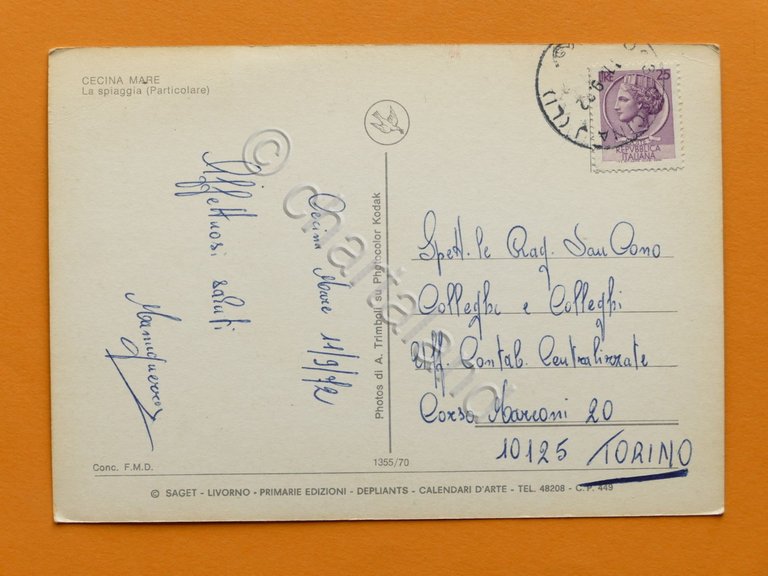 CECINA MARE
La spiaggia (Particolare)
Affettuosi saluti
Cecina Mare 11/9/72
Photos di A. Trimboli su Photocolor Kodak
1355/70
LIRE 25
POSTE
REPVBBLICA
ITALIANA
CECINA (LI)
Spett.le Rag. San Cono
Colleghe e Colleghi
Uff. Contab. Centralizzate
Corso Marconi 20
10125 TORINO
Conc. F.M.D.
© SAGET - LIVORNO - PRIMARIE EDIZIONI - DEPLIANTS - CALENDARI D'ARTE - TEL. 48208 - C.P. 449
© chartaland